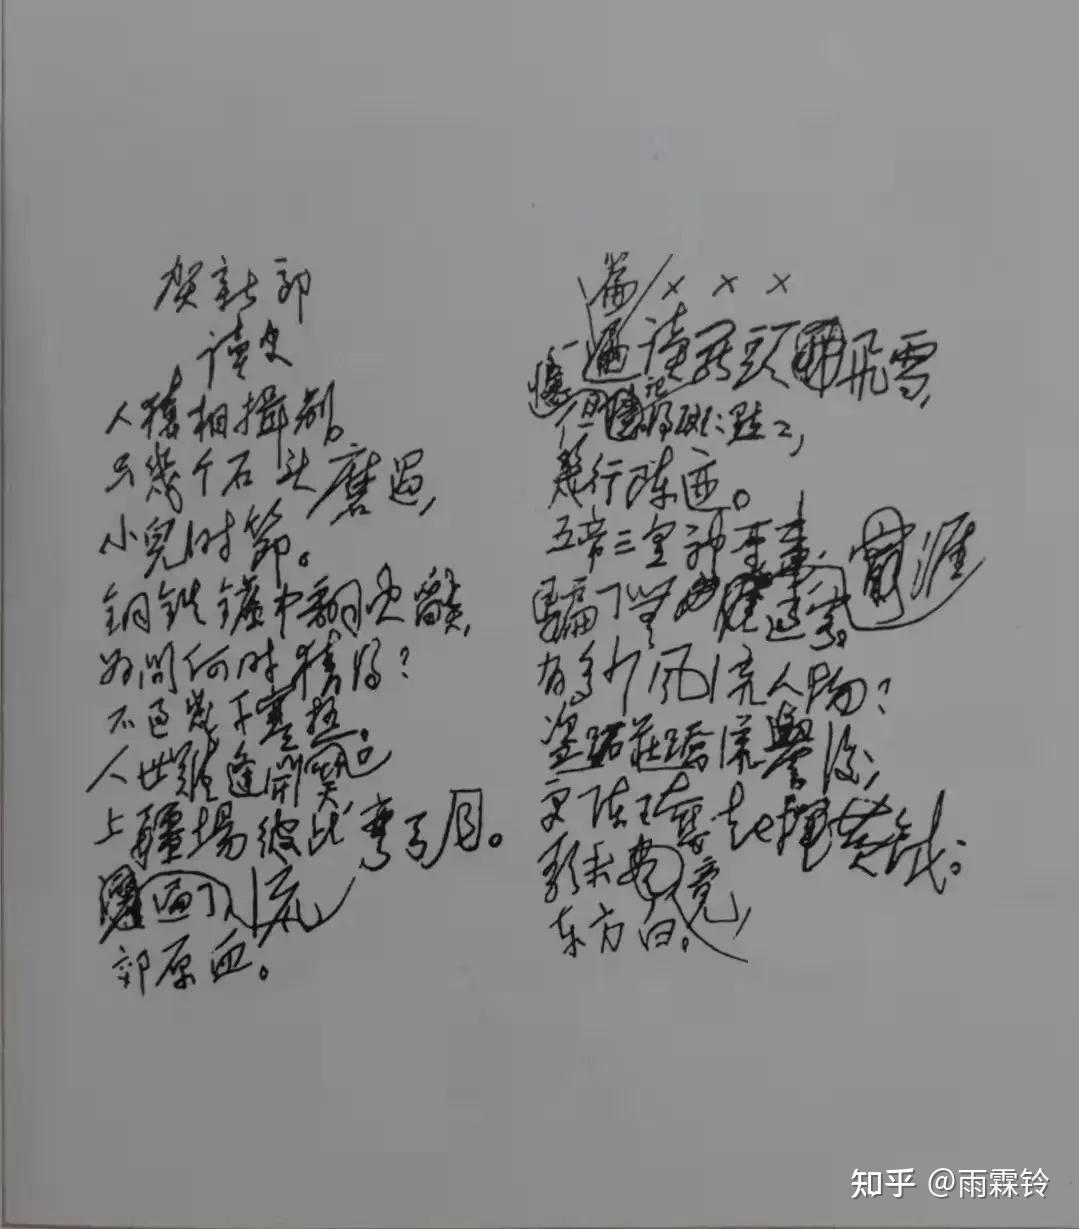 贺新郎
读史
人猿相揖别。
只幾个石头磨过,
小兒时節。
铜铁爐中翻火焰,
为问何时猜得?
不过幾千寒热。
人世難逢開笑口
上疆場彼此弯弓月。
遍了,流
郊原血。
篇 × × ×
一遍读罢頭飛雪,
但记得斑:點:,
幾行陈迹。
五帝三皇神聖事,
騙了無 过客。涯
有多少风流人物?
盗跖莊蹻流譽後,
更陈王奋起挥黄钺。
歌未竟,
东方白。
知乎 @雨霖铃